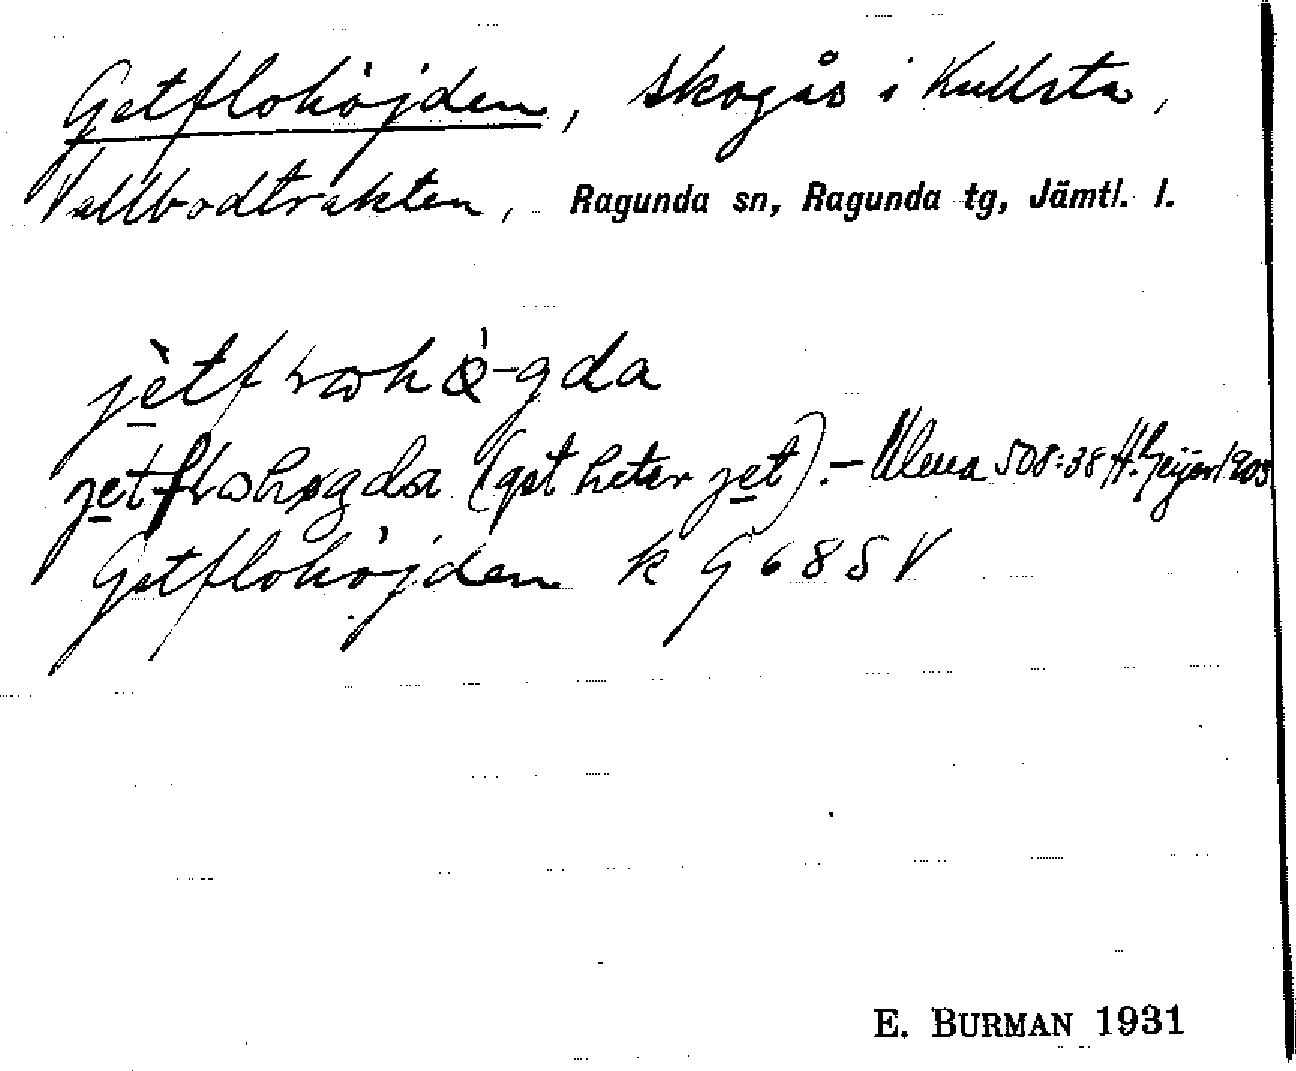 Getflohöjden, skogås i Kullsta,
Vallbodtrakten, Ragunda sn, Ragunda tg, Jämtl. l.
(get heter jet). – Ulma 508:38 H. Geijer 1903
Getflohöjden k G 68 SV
E. BURMAN 1931